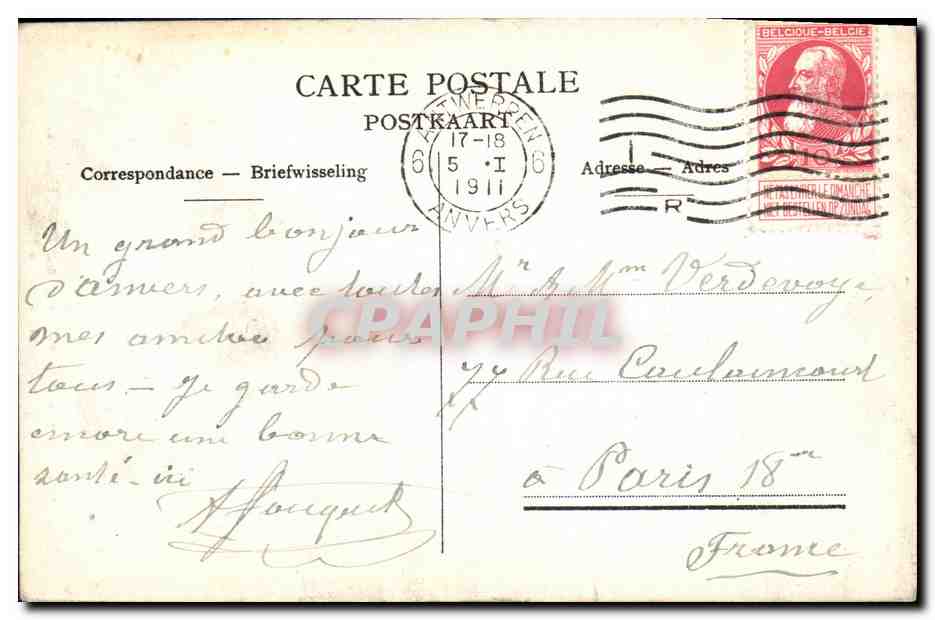 CARTE POSTALE
POSTKAART
Correspondance — Briefwisseling
Adresse — Adres
ANTWERPEN
17-18
6 5 · I 6
1911
ANVERS
R
BELGIQUE-BELGIË
10
NE PAS LIVRER LE DIMANCHE
NIET BESTELLEN OP ZONDAG
Un grand bonjour
d'anvers, avec toutes
mes amitiés pour
tous — Je garde
encore une bonne
santé - ici
Mr & Mme Verdevoye,
77 Rue Caulaincourt
à Paris 18me
France
CPAPHIL